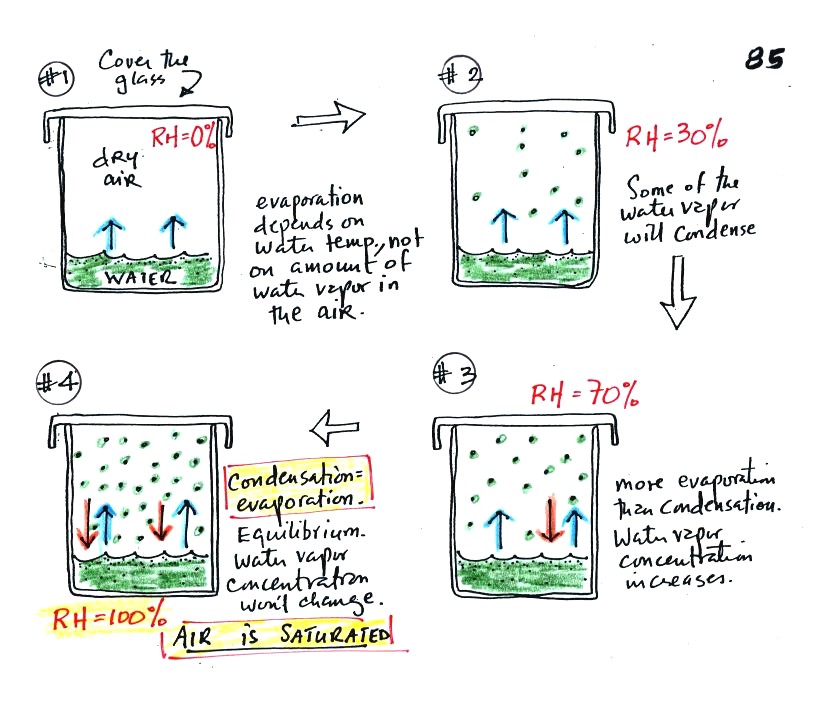 85
#1
Cover the
glass
RH=0%
dry
air
WATER
evaporation
depends on
water temp., not
on amount of
water vapor in
the air.
#2
RH=30%
Some of the
water vapor
will condense
#3
RH=70%
more evaporation
than condensation.
Water vapor
concentration
increases.
#4
Condensation=
evaporation.
Equilibrium.
Water vapor
concentration
won't change.
RH=100%
AIR is SATURATED